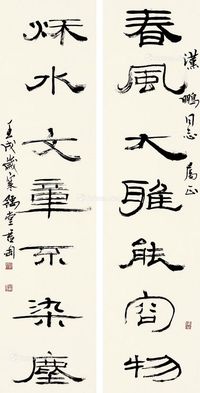 漢鵬同志屬正
春風大雅能容物
秋水文章不染塵
壬戌歲寒